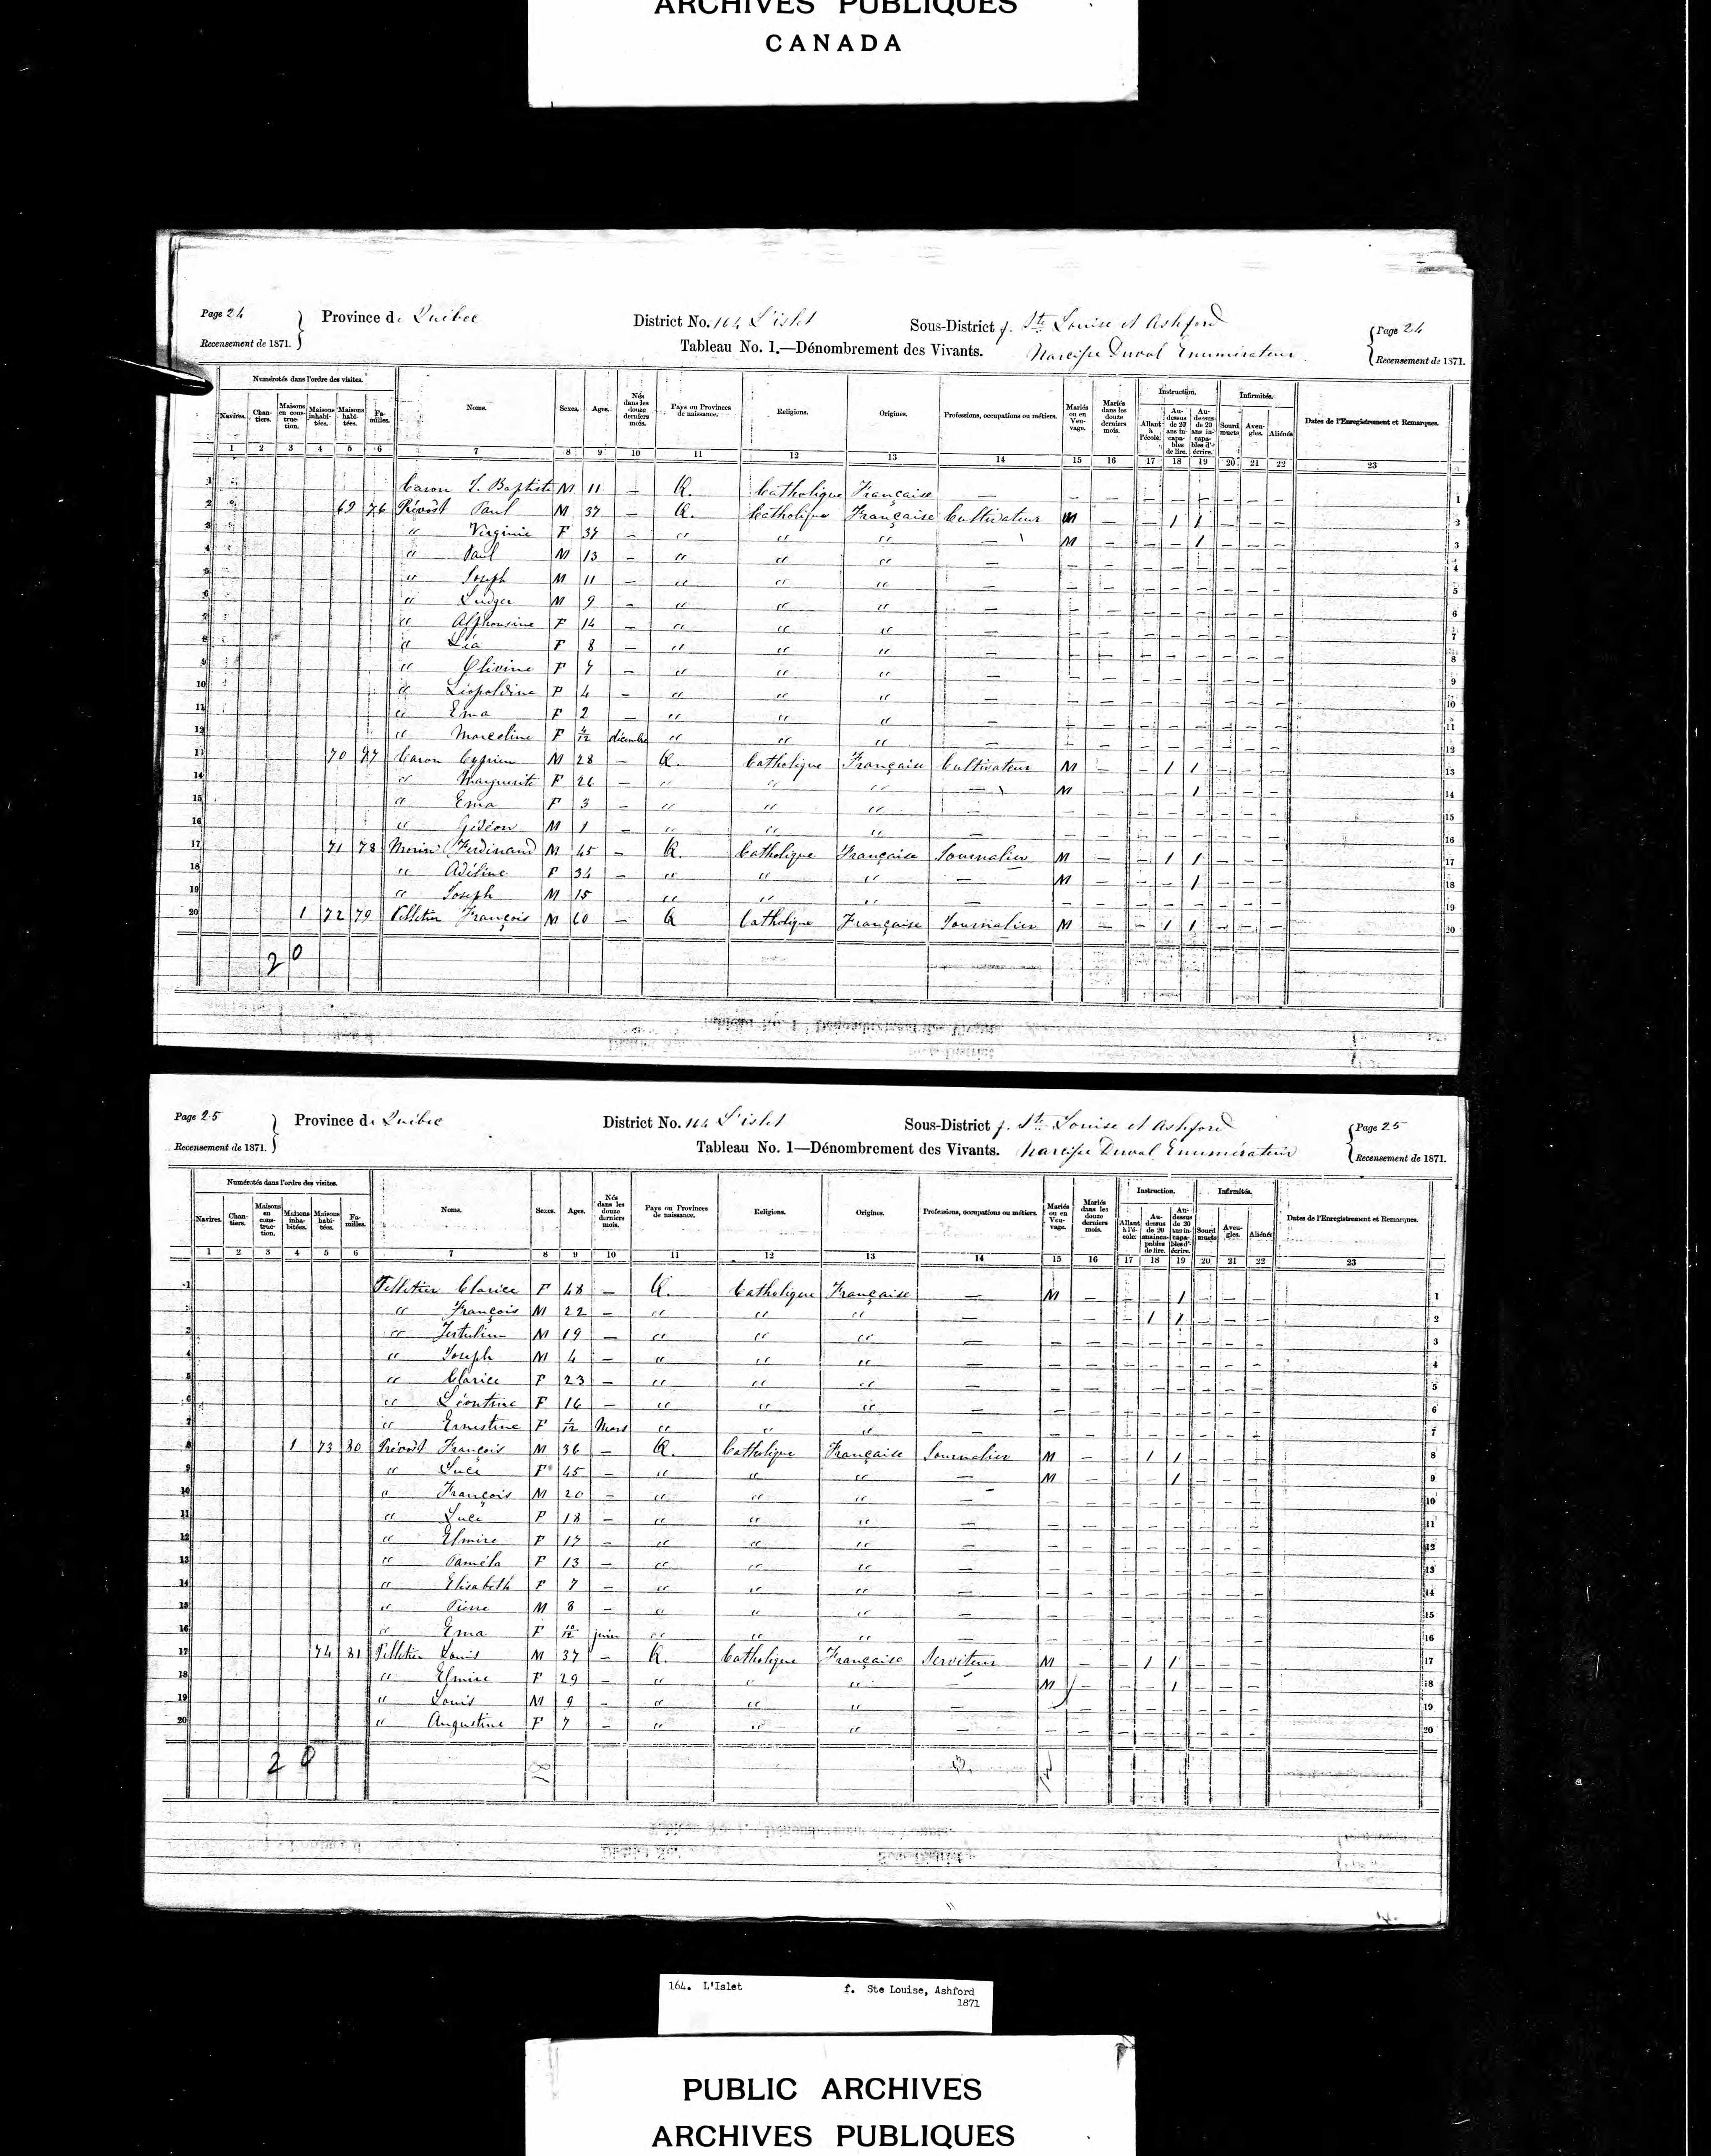 ARCHIVES PUBLIQUES
CANADA
Page 24
Province de Québec
District No. 164 L'islet
Sous-District f. Ste Louise et Ashford
Page 24
Recensement de 1871.
Tableau No. 1.—Dénombrement des Vivants.
Narcisse Duval Enumérateur
Recensement de 1871.
Numérotés dans l'ordre des visites. Instruction. Infirmités.
Navires. Chantiers. Maisons en construction. Maisons inhabitées. Maisons habitées. Familles. Noms. Sexes. Ages. Nés dans les douze derniers mois. Pays ou Provinces de naissance. Religions. Origines. Professions, occupations ou métiers. Mariés ou en Veuvage. Mariés dans les douze derniers mois. Allant à l'école. Au-dessus de 20 ans incapables de lire. Au-dessus de 20 ans incapables d'écrire. Sourd muets Aveugles. Aliénés Dates de l'Enregistrement et Remarques.
1 2 3 4 5 6 7 8 9 10 11 12 13 14 15 16 17 18 19 20 21 22 23
1 Caron J. Baptiste M 11 — Q. Catholique Française — — — — — — — — — 1
2 69 76 Prévost Paul M 37 — Q. Catholique Française Cultivateur M — — 1 1 — — — 2
3 " Virginie F 37 — " " " — M — — — 1 — — — 3
4 " Paul M 13 — " " " — — — — — — — — — 4
5 " Joseph M 11 — " " " — — — — — — — — — 5
6 " Ludger M 9 — " " " — — — — — — — — — 6
7 " Alphonsine F 14 — " " " — — — — — — — — — 7
8 " Léa F 8 — " " " — — — — — — — — — 8
9 " Olivine F 7 — " " " — — — — — — — — — 9
10 " Léopoldine F 4 — " " " — — — — — — — — — 10
11 " Ema F 2 — " " " — — — — — — — — — 11
12 " Marceline F 4/12 décembre " " " — — — — — — — — — 12
13 70 77 Caron Cyprien M 28 — Q. Catholique Française Cultivateur M — — 1 1 — — — 13
14 " Marguerite F 26 — " " " — M — — — 1 — — — 14
15 " Ema F 3 — " " " — — — — — — — — — 15
16 " Gédéon M 1 — " " " — — — — — — — — — 16
17 71 78 Morin Ferdinand M 45 — Q. Catholique Française Journalier M — — 1 1 — — — 17
18 " Adéline F 34 — " " " — M — — — 1 — — — 18
19 " Joseph M 15 — " " " — — — — — — — — — 19
20 1 72 79 Pelletier François M 60 — Q Catholique Française Journalier M — — 1 1 — — — 20
20
Page 25
Province de Québec
District No. 164 L'islet
Sous-District f. Ste Louise et Ashford
Page 25
Recensement de 1871.
Tableau No. 1—Dénombrement des Vivants.
Narcisse Duval Enumérateur
Recensement de 1871.
Numérotés dans l'ordre des visites. Instruction. Infirmités.
Navires. Chantiers. Maisons en construction. Maisons inhabitées. Maisons habitées. Familles. Noms. Sexes. Ages. Nés dans les douze derniers mois. Pays ou Provinces de naissance. Religions. Origines. Professions, occupations ou métiers. Mariés ou en Veuvage. Mariés dans les douze derniers mois. Allant à l'école. Au-dessus de 20 ans incapables de lire. Au-dessus de 20 ans incapables d'écrire. Sourd muets Aveugles. Aliénés Dates de l'Enregistrement et Remarques.
1 2 3 4 5 6 7 8 9 10 11 12 13 14 15 16 17 18 19 20 21 22 23
1 Pelletier Clarice F 48 — Q. Catholique Française — M — — — 1 — — — 1
2 " François M 22 — " " " — — — — 1 1 — — — 2
3 " M 19 — " " " — — — — — — — — — 3
4 " Joseph M 4 — " " " — — — — — — — — — 4
5 " Clarice F 23 — " " " — — — — — — — — — 5
6 " Léontine F 16 — " " " — — — — — — — — — 6
7 " Ernestine F 1/12 Mars " " " — — — — — — — — — 7
8 1 73 80 Prévost François M 36 — Q. Catholique Française Journalier M — — 1 1 — — — 8
9 " Luce F 45 — " " " — M — — — 1 — — — 9
10 " François M 20 — " " " — — — — — — — — — 10
11 " Luce F 18 — " " " — — — — — — — — — 11
12 " Elmire F 17 — " " " — — — — — — — — — 12
13 " Paméla F 13 — " " " — — — — — — — — — 13
14 " Elisabeth F 7 — " " " — — — — — — — — — 14
15 " Pierre M 8 — " " " — — — — — — — — — 15
16 " Ema F 10/12 juin " " " — — — — — — — — — 16
17 74 81 Pelletier Louis M 37 — Q. Catholique Française Serviteur M — — 1 1 — — — 17
18 " Elmire F 29 — " " " — M — — — 1 — — — 18
19 " Louis M 9 — " " " — — — — — — — — — 19
20 " Augustine F 7 — " " " — — — — — — — — — 20
20
164. L'Islet f. Ste Louise, Ashford
1871
PUBLIC ARCHIVES
ARCHIVES PUBLIQUES